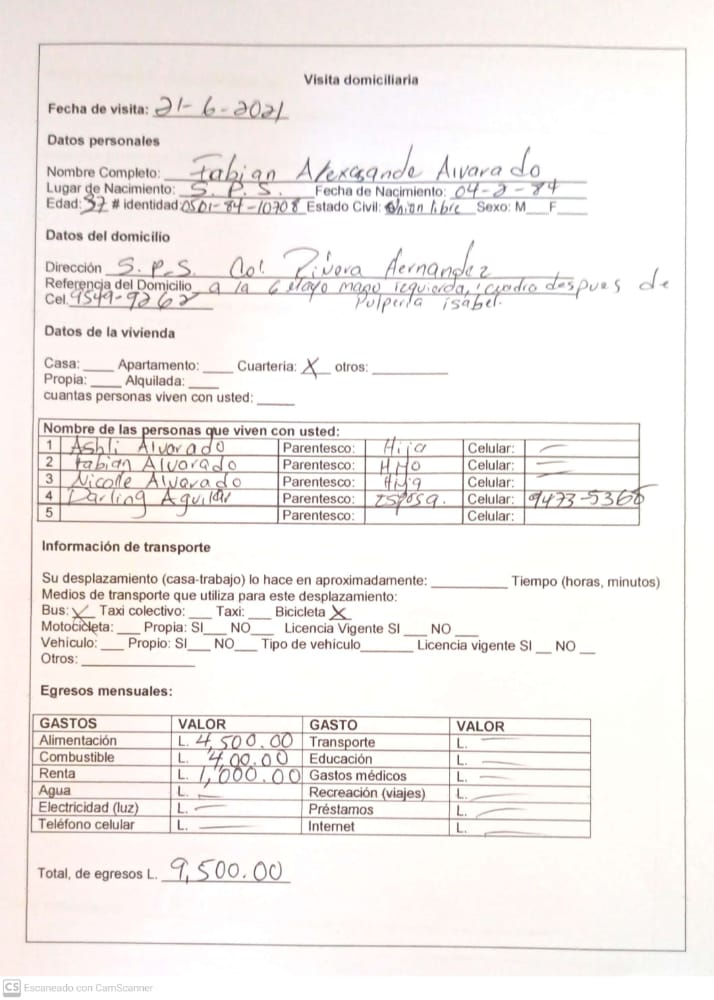 Visita domiciliaria
Fecha de visita: 21-6-2021
Datos personales
Nombre Completo: Fabian Alexsande Alvarado
Lugar de Nacimiento: S. P. S. Fecha de Nacimiento: 04-2-84
Edad: 37 # identidad: 0501-84-10708 Estado Civil: Union libre Sexo: M___F___
Datos del domicilio
Dirección S. P. S. Col. Rivera Hernandez
Referencia del Domicilio a la 6 Mayo mano izquierda, 1 cuadro despues de
Cel. 9549-9262 Pulperia isabel.
Datos de la vivienda
Casa: ____ Apartamento: ____ Cuarteria: X otros: __________
Propia: ____ Alquilada: ____
cuantas personas viven con usted: _____
Nombre de las personas que viven con usted:
1 Ashli Alvarado Parentesco: Hija Celular: —
2 Fabian Alvarado Parentesco: HIJO Celular: —
3 Nicolle Alvarado Parentesco: Hija Celular: —
4 Darling Aguilar Parentesco: Esposa. Celular: 9473-5366
5 Parentesco: Celular:
Información de transporte
Su desplazamiento (casa-trabajo) lo hace en aproximadamente: __________ Tiempo (horas, minutos)
Medios de transporte que utiliza para este desplazamiento:
Bus: X Taxi colectivo: ___ Taxi: ___ Bicicleta X
Motocicleta: ___ Propia: SI___ NO___ Licencia Vigente SI ___ NO ___
Vehículo: ___ Propio: SI___ NO___ Tipo de vehículo_______ Licencia vigente SI __ NO __
Otros: _______________
Egresos mensuales:
GASTOS VALOR GASTO VALOR
Alimentación L. 4,500.00 Transporte L. —
Combustible L. 400.00 Educación L. —
Renta L. 1,000.00 Gastos médicos L. —
Agua L. — Recreación (viajes) L. —
Electricidad (luz) L. — Préstamos L. —
Teléfono celular L. — Internet L. —
Total, de egresos L. 9,500.00
CS Escaneado con CamScanner